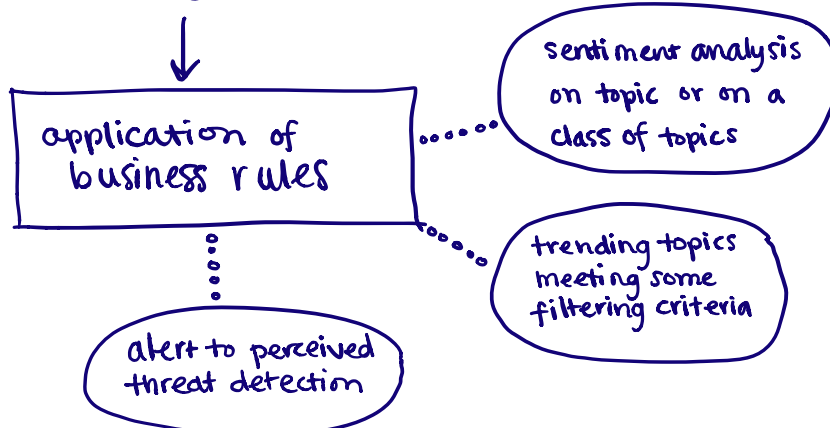 application of
business rules
sentiment analysis
on topic or on a
class of topics
trending topics
meeting some
filtering criteria
alert to perceived
threat detection